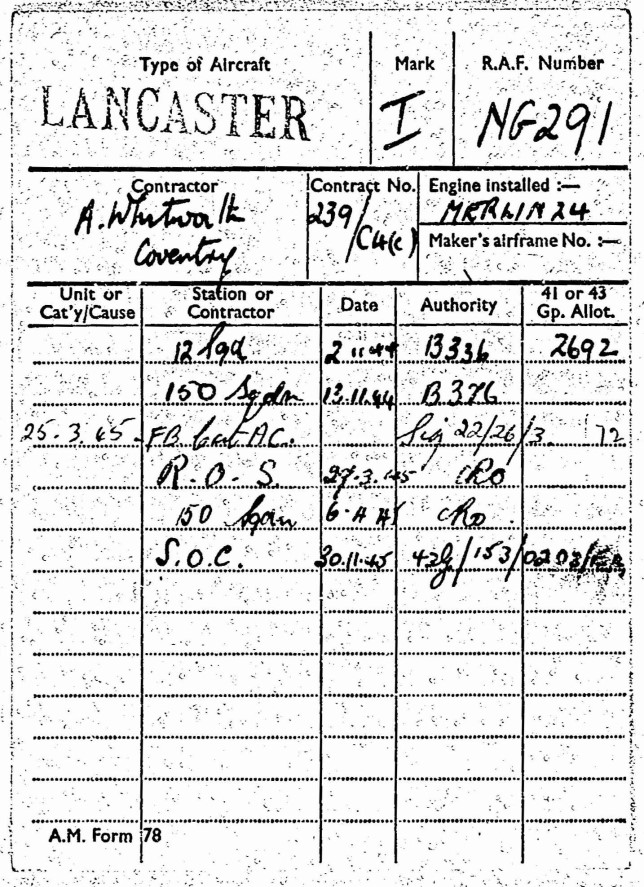 Type of Aircraft Mark R.A.F. Number
LANCASTER I NG291
Contractor Contract No. Engine installed :—
A. Whitworth 239 MERLIN 24
Coventry /C4(c) Maker's airframe No. :—
Unit or Station or Date Authority 41 or 43
Cat'y/Cause Contractor Gp. Allot.
12 Sqd 2 11 44 B336 2692
150 Sqdn 13.11.44 B376
25.3.45 FB. Cat AC. Sig 22/26/3. 72
R.O.S. 27.3.45 cRo
150 Sqdn 6.4.45 cRo
S.O.C. 30.11.45 43G/153/0203/
A.M. Form 78